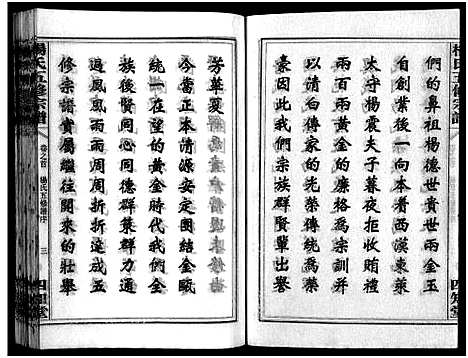 們的鼻祖楊德貴世雨金玉
自創業後一向本着西漢東萊
太守楊震夫子暮夜拒收
兩百兩黃金的廉格爲宗訓并
以清白傳家的光榮傳統爲榮
豪因此我們宗族群賢輩出譽
芳華夏
今當正本清源安定團結金甌
統一在望的黃金時代我們全
族後賢同心同德群集群力通
過風風雨雨折折磨磨達成五
修宗譜貴屬可觀帶來的壯舉
楊氏五修宗譜
卷之首
楊氏五修譜序
三
四知堂
楊氏五修宗譜
四知堂